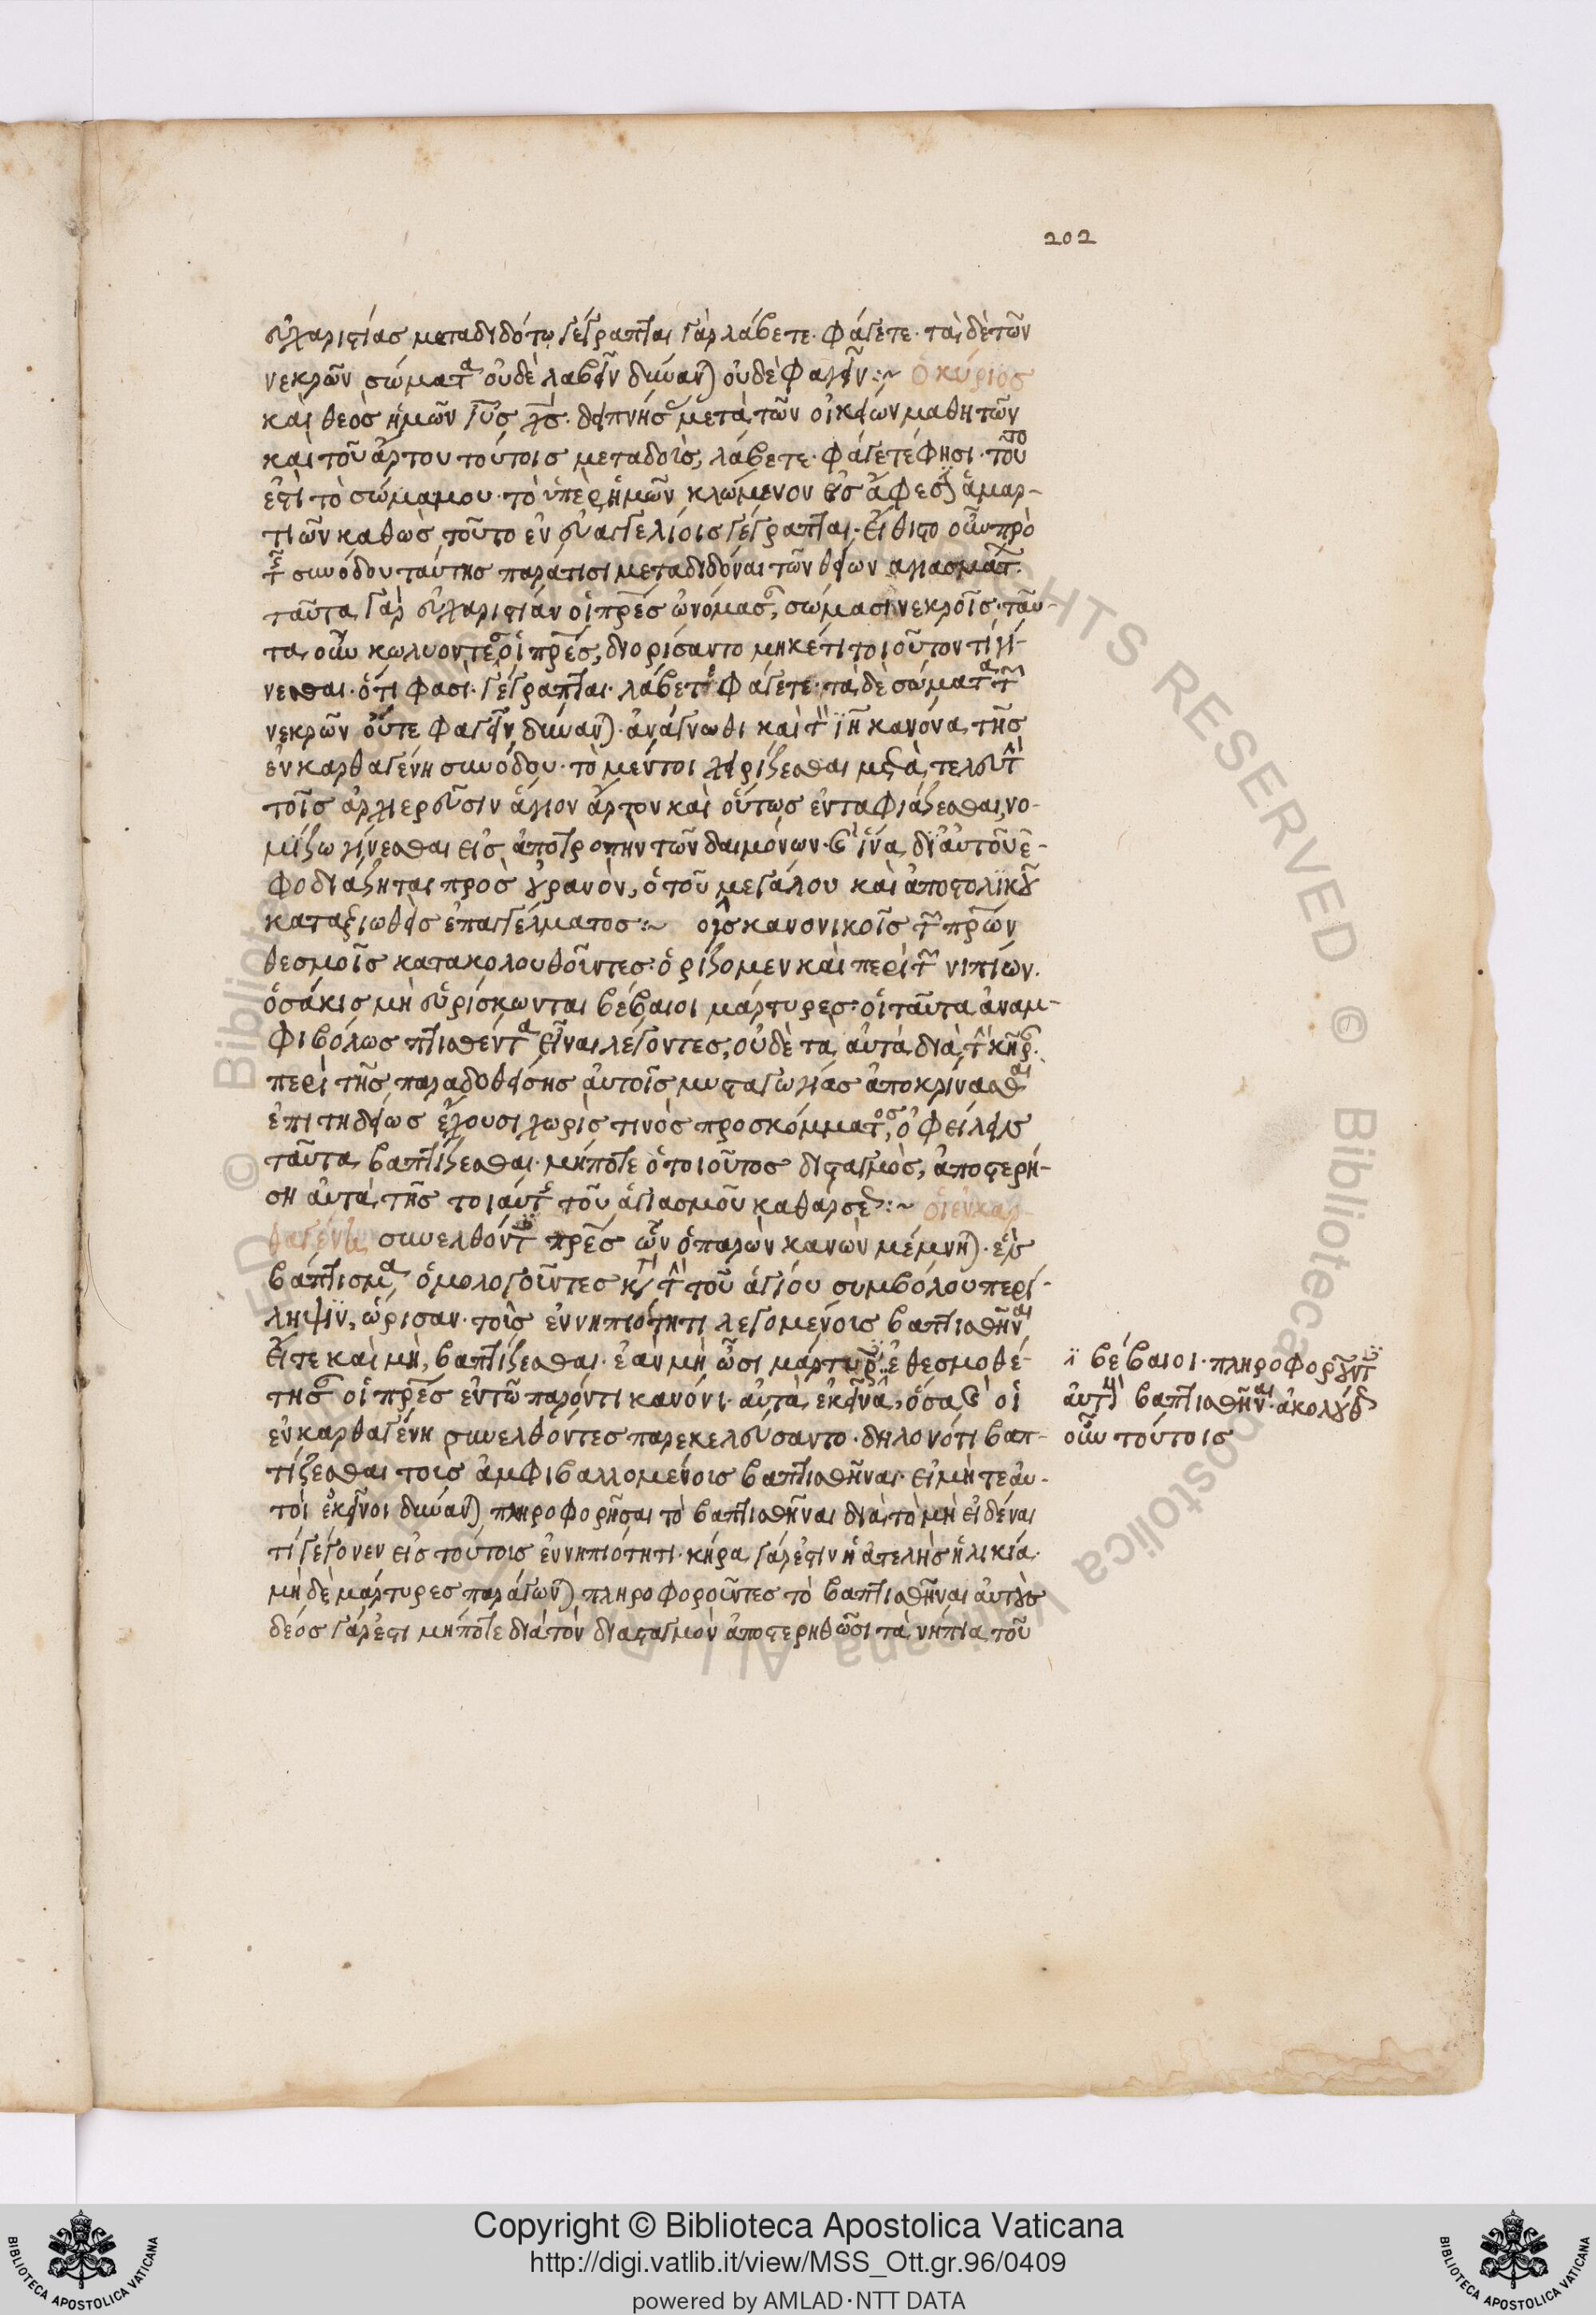 202
εὐχαριστίας μεταδιδότω, γέγραπται γὰρ λάβετε· φάγετε· τὰ δὲ τῶν
νεκρῶν σώματα οὐδὲ λαβεῖν δύναν) οὐδὲ φαγεῖν:~ ὁ κύριος
καὶ θεὸς ἡμῶν ι̅υ̅ς χ̅ς· δειπνήσας μετὰ τῶν οἰκείων μαθητῶν
καὶ τοῦ ἄρτου τούτοις μεταδοὺς, λάβετε· φάγετέ φησι· τοῦτο
ἐστὶ τὸ σῶμα μου· τὸ ὑπὲρ ἡμῶν κλώμενον εἰς ἄφεσιν ἁμαρ-
τιῶν καθὼς τοῦτο ἐν εὐαγγελίοις γέγραπται· εἴθιστο οὖν πρὸ
τῆς συνόδου ταύτης παρά τισι μεταδιδόναι τῶν θείων ἁγιασμάτ
ταῦτα γὰρ εὐχαριστίαν οἱ πρ̅ες ὠνόμασαν, σώμασι νεκροῖς· ταῦ-
τα οὖν κωλύοντες οἱ πρ̅ες, διορίσαντο μηκέτι τοιοῦτον τί γί-
νεσθαι· ὅτι φασι· γέγραπται· λάβετε φάγετε· τὰ δὲ σώματα τῶν
νεκρῶν οὔτε φαγεῖν δύναν)· ἀνάγνωθι καὶ τὸν ιη κανόνα τῆς
ἐν καρθαγένη συνόδου· τὸ μέντοι ἐγχειρίζεσθαι μετὰ τελευτὴν
τοῖς ἀρχιερεῦσιν ἅγιον ἄρτον καὶ οὕτως ἐνταφιάζεσθαι, νο-
μίζω γίνεσθαι εἰς ἀποτροπὴν τῶν δαιμόνων· καὶ ἵνα δι' αὐτοῦ ἐ-
φοδιάζηται πρὸς οὐρανὸν, ὁ τοῦ μεγάλου καὶ ἀποστολικοῦ
καταξιωθεὶς ἐπαγγέλματος:~ τοῖς κανονικοῖς τῶν πρ̅ων
θεσμοῖς κατακολουθοῦντες· ὁρίζομεν καὶ περὶ τῶν νιπίων.
ὁσάκις μὴ εὑρίσκωνται βέβαιοι μάρτυρες· οἱ ταῦτα ἀναμ-
φιβόλως πτισθέντα εἶναι λέγοντες, οὐδὲ τὰ αὐτὰ διὰ τὴν
περὶ τῆς παραδοθείσης αὐτοῖς μυσταγωγίας ἀποκρίνασθαι
ἐπιτηδείως ἔχουσι χωρὶς τινὸς προσκόμματος, ὀφείλειν
ταῦτα βαπτίζεσθαι· μήποτε ὁ τοιοῦτος δισταγμὸς, ἀποστερή-
ση αὐτὰ τῆς τοιαύτης τοῦ ἁγιασμοῦ καθάρσεως:~ οἱ ἐν καρ-
θαγένη συνελθόντες πρ̅ες ὧν ὁ παρὼν κανὼν μέμνη)· εἰς
βάπτισμα ὁμολογοῦντες κατὰ τὴν τοῦ ἁγίου συμβόλου περί-
ληψιν, ὥρισαν· τοῖς ἐν νηπιότητι λεγομένοις βαπτισθῆναι
εἴτε καὶ μὴ, βαπτίζεσθαι· ἐὰν μὴ ὦσι μάρτυρες ἐθεσμοθέ-
τησαν οἱ πρ̅ες ἐν τῶ παρόντι κανόνι· αὐτὰ ἐκεῖνα, ὅσα καὶ οἱ
ἐν καρθαγένη συνελθόντες παρεκελεύσαντο· δηλονότι βαπ-
τίζεσθαι τοις ἀμφιβαλλομένοις βαπτισθῆναι· εἰ μήτε αὐ-
τοὶ ἐκεῖνοι δύναν) πληροφορῆσαι τὸ βαπτισθῆναι διὰ τὸ μὴ εἰδέναι
τί γέγονεν εἰς τούτοις ἐν νηπιότητι· κήρα γάρ ἐστιν ἡ ἀτελὴς ἡλικία·
μὴ δὲ μάρτυρες παράγων) πληροφοροῦντες τὸ βαπτισθῆναι αὐτοὺς
δέος γάρ ἐστι μήποτε διὰ τὸν δισταγμὸν ἀποστερηθῶσι τὰ νήπια τοῦ
βέβαιοι· πληροφοροῦντες
αὐτοὺς βαπτισθῆναι· ἀκολούθως
οὖν τούτοις
Copyright © Biblioteca Apostolica Vaticana
http://digi.vatlib.it/view/MSS_Ott.gr.96/0409
powered by AMLAD·NTT DATA